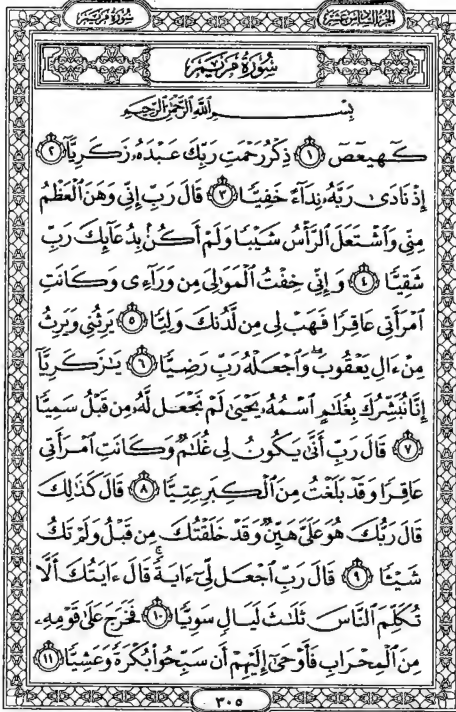 سُورَةُ مَرْيَمَ
الجزء السادس عشر
سُورَةُ مَرْيَمَ
بِسْمِ ٱللَّهِ ٱلرَّحْمَٰنِ ٱلرَّحِيمِ
كٓهيعٓصٓ ١ ذِكْرُ رَحْمَتِ رَبِّكَ عَبْدَهُۥ زَكَرِيَّآ ٢
إِذْ نَادَىٰ رَبَّهُۥ نِدَآءً خَفِيًّا ٣ قَالَ رَبِّ إِنِّى وَهَنَ ٱلْعَظْمُ
مِنِّى وَٱشْتَعَلَ ٱلرَّأْسُ شَيْبًا وَلَمْ أَكُنۢ بِدُعَآئِكَ رَبِّ
شَقِيًّا ٤ وَإِنِّى خِفْتُ ٱلْمَوَٰلِىَ مِن وَرَآءِى وَكَانَتِ
ٱمْرَأَتِى عَاقِرًا فَهَبْ لِى مِن لَّدُنكَ وَلِيًّا ٥ يَرِثُنِى وَيَرِثُ
مِنْ ءَالِ يَعْقُوبَ ۖ وَٱجْعَلْهُ رَبِّ رَضِيًّا ٦ يَٰزَكَرِيَّآ
إِنَّا نُبَشِّرُكَ بِغُلَٰمٍ ٱسْمُهُۥ يَحْيَىٰ لَمْ نَجْعَل لَّهُۥ مِن قَبْلُ سَمِيًّا
٧ قَالَ رَبِّ أَنَّىٰ يَكُونُ لِى غُلَٰمٌ وَكَانَتِ ٱمْرَأَتِى
عَاقِرًا وَقَدْ بَلَغْتُ مِنَ ٱلْكِبَرِ عِتِيًّا ٨ قَالَ كَذَٰلِكَ
قَالَ رَبُّكَ هُوَ عَلَىَّ هَيِّنٌ وَقَدْ خَلَقْتُكَ مِن قَبْلُ وَلَمْ تَكُ
شَيْـًٔا ٩ قَالَ رَبِّ ٱجْعَل لِّىٓ ءَايَةً ۚ قَالَ ءَايَتُكَ أَلَّا
تُكَلِّمَ ٱلنَّاسَ ثَلَٰثَ لَيَالٍ سَوِيًّا ١٠ فَخَرَجَ عَلَىٰ قَوْمِهِۦ
مِنَ ٱلْمِحْرَابِ فَأَوْحَىٰٓ إِلَيْهِمْ أَن سَبِّحُوا۟ بُكْرَةً وَعَشِيًّا ١١
٣٠٥